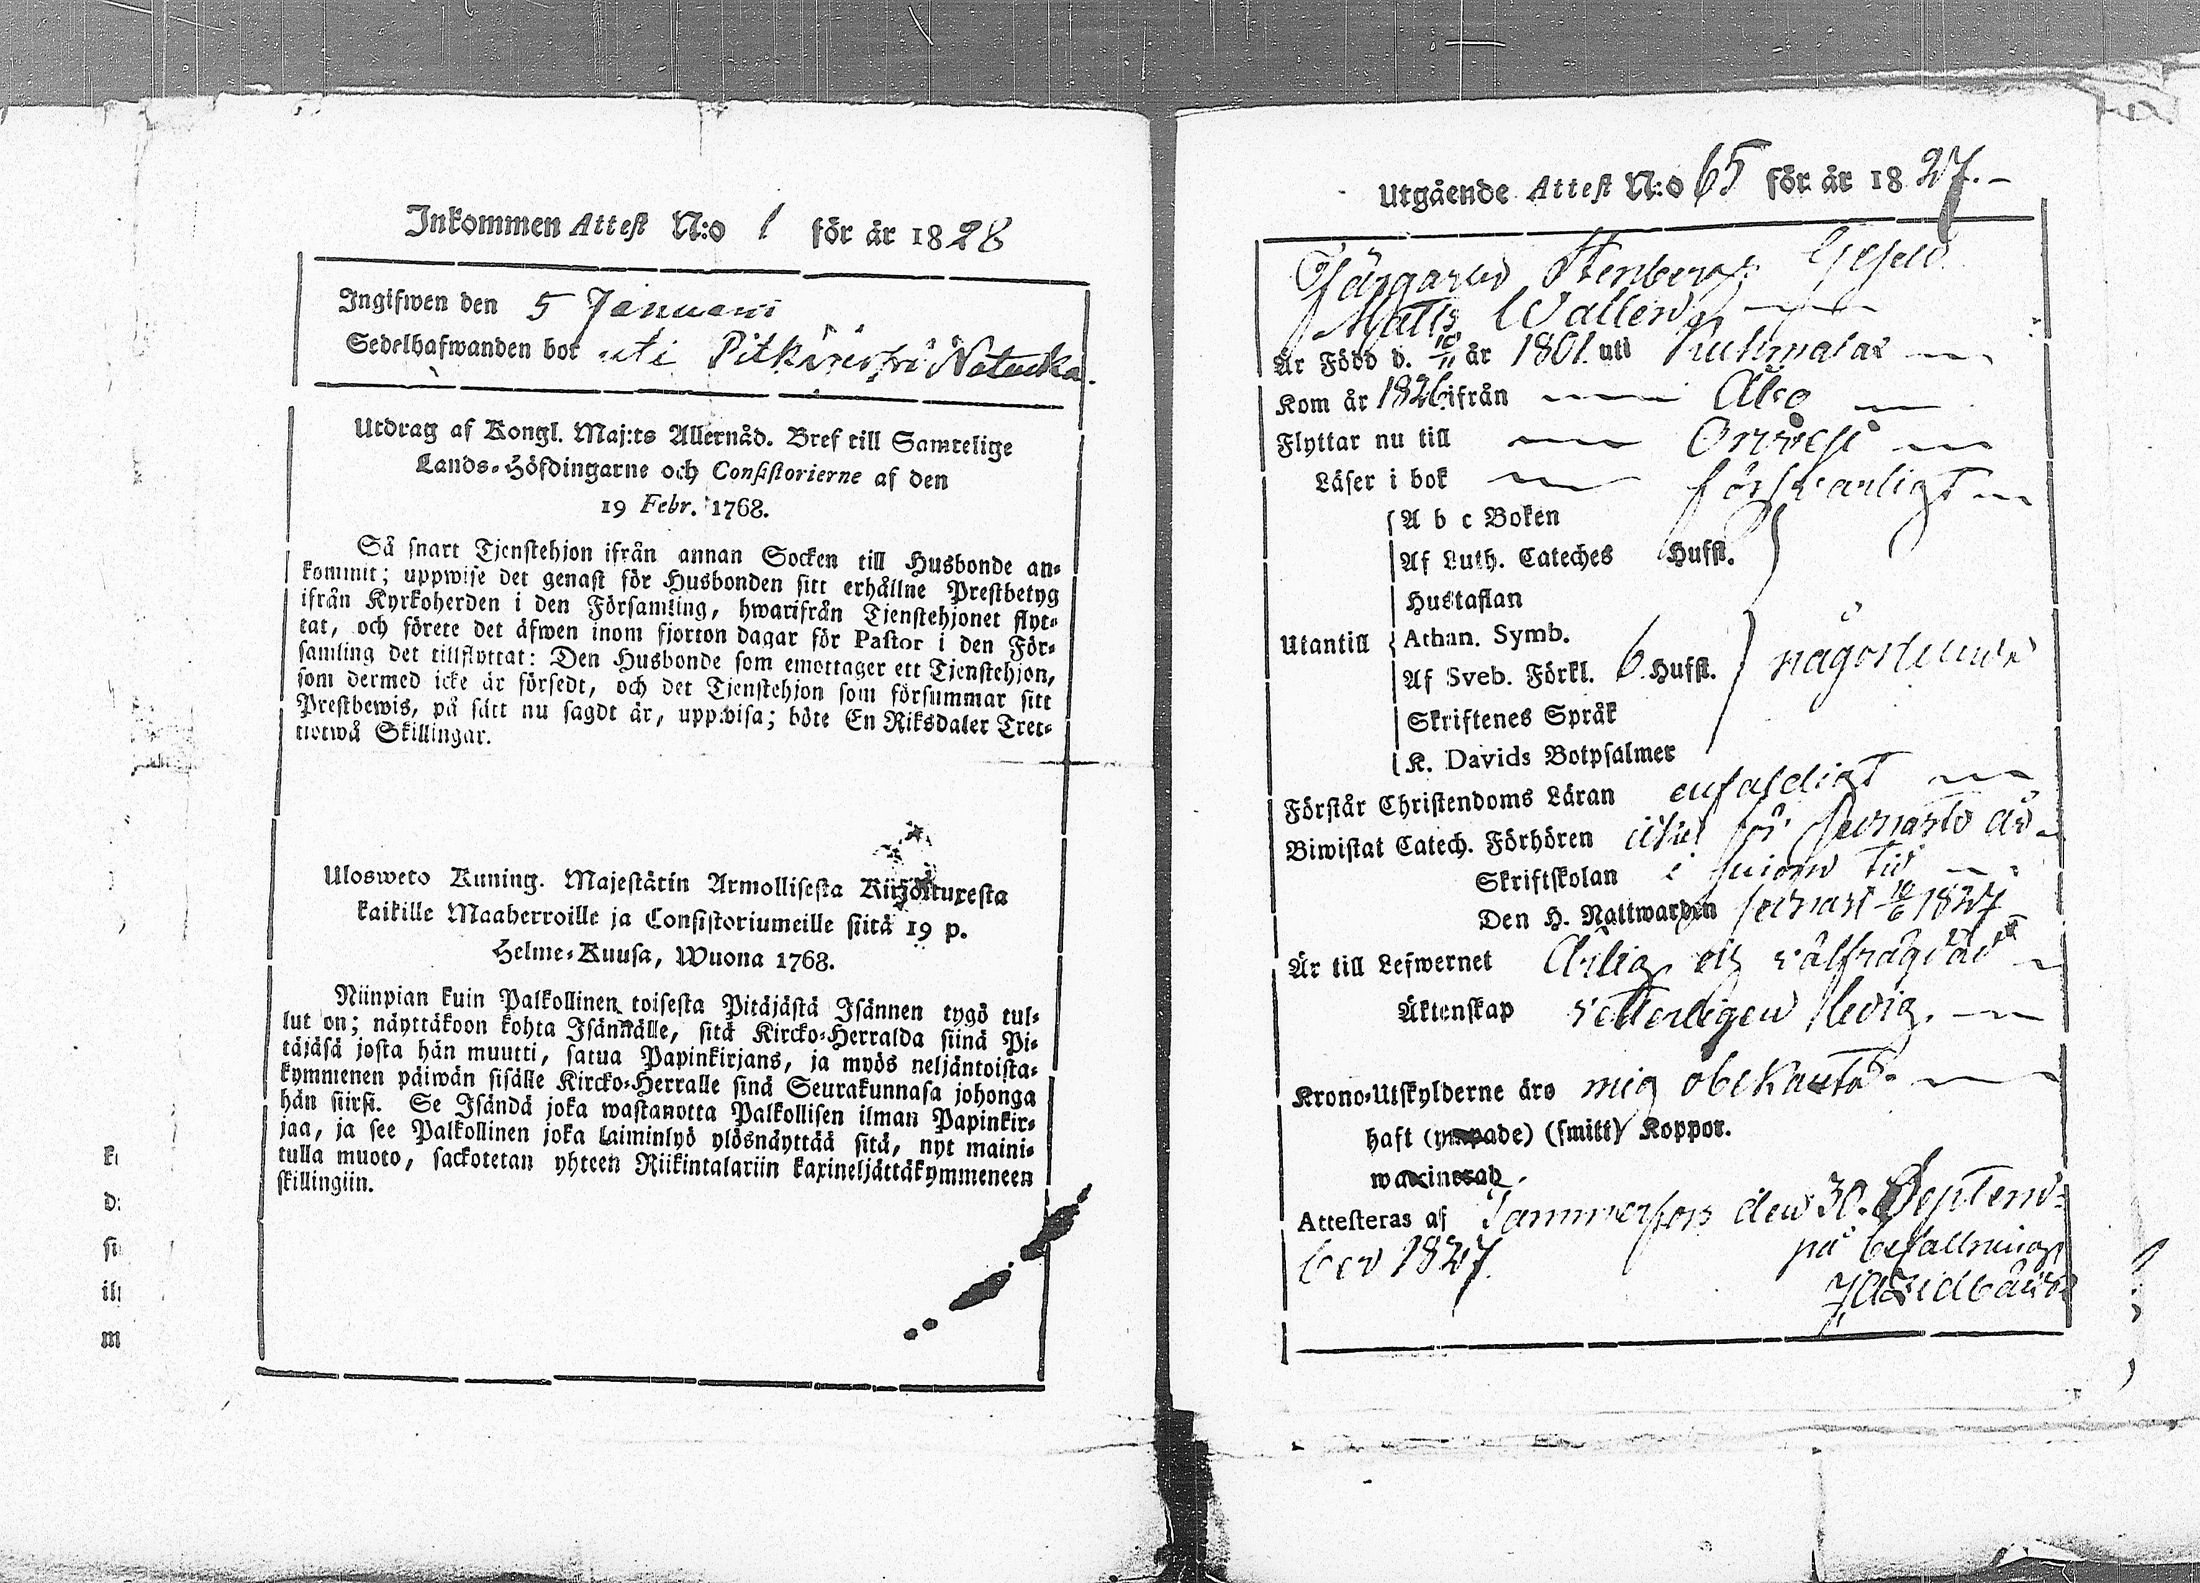 Inkommen Attest N:o 1 för år 1828
Ingifwen den 5 Januarii
Sedelhafwanden bor uti
Utdrag af Kongl. Maj:ts Allernåd. Bref till Samtelige
Lands-Höfdingarne och Consistorierne af den
19 Febr. 1768.
Så snart Tjenstehjon ifrån annan Socken till Husbonde an-
kommit; uppwise det genast för Husbonden sitt erhållne Prestbetyg
ifrån Kyrkoherden i den Församling, hwarifrån Tjenstehjonet flyt-
tat, och förete det äfwen inom fjorton dagar för Pastor i den För-
samling det tillflyttat: Den Husbonde som emottager ett Tjenstehjon,
som dermed icke är försedt, och det Tjenstehjon som försummar sitt
Prestbewis, på sätt nu sagdt är, uppwisa; böte En Riksdaler Tret-
tiotwå Skillingar.
Ulosweto Kuning. Majestätin Armollisesta Kirjoituxesta
kaikille Maaherroille ja Consistoriumeille siitä 19 p.
Helme-Kuusa, Wuona 1768.
Niinpian kuin Palkollinen toisesta Pitäjästä Isännen tygö tul-
lut on; näyttäkoon kohta Isännälle, sitä Kircko-Herralda siinä Pi-
täjäsä josta hän muutti, satua Papinkirjans, ja myös neljäntoista-
kymmenen päiwän sisälle Kircko-Herralle sinä Seurakunnasa johonga
hän siirsi. Se Isändä joka wastanotta Palkollisen ilman Papinkir-
jaa, ja see Palkollinen joka laiminlyö ylösnäyttää sitä, nyt maini-
tulla muoto, sackotetan yhteen Riikintalariin kaxineljättäkymmeneen
skillingiin.
Utgående Attest N:o 65 för år 1827.
Färgaren Stenbergs Gesell
Matts Wallen
Är Född d. 10/11 år 1801 uti
Kom år 1826 ifrån Åbo
Flyttar nu till Orivesi
Läser i bok försvarligt
A b c Boken
Af Luth. Cateches Hufst.
Hustaflan
Utantill Athan. Symb.
Af Sveb. Förkl. 6 Hufst. någorlunda
Skriftenes Språk
K. Davids Botpsalmer
Förstår Christendoms Läran enfaldigt
Biwistat Catech. Förhören
Skriftskolan i sinom tid
Den H. Nattwarden senast 10/6 1827
Är till Lefwernet Ärlig och välfrägdad
Äktenskap vetterligen ledig.
Krono-Utskylderne äro mig obekanta
haft (ympade) (smitt) Koppor.
waxinerad
Attesteras af Tammerfors den 30. Septem-
ber 1827.
på befallning